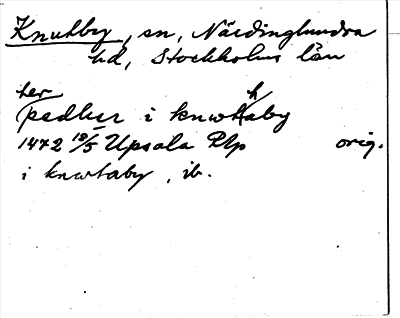 Knutby, sn, Närdinghundra
hd, Stockholms län
her pedher i knwthaby
1472 18/5 Upsala Plp orig.
i knwtaby, ib.